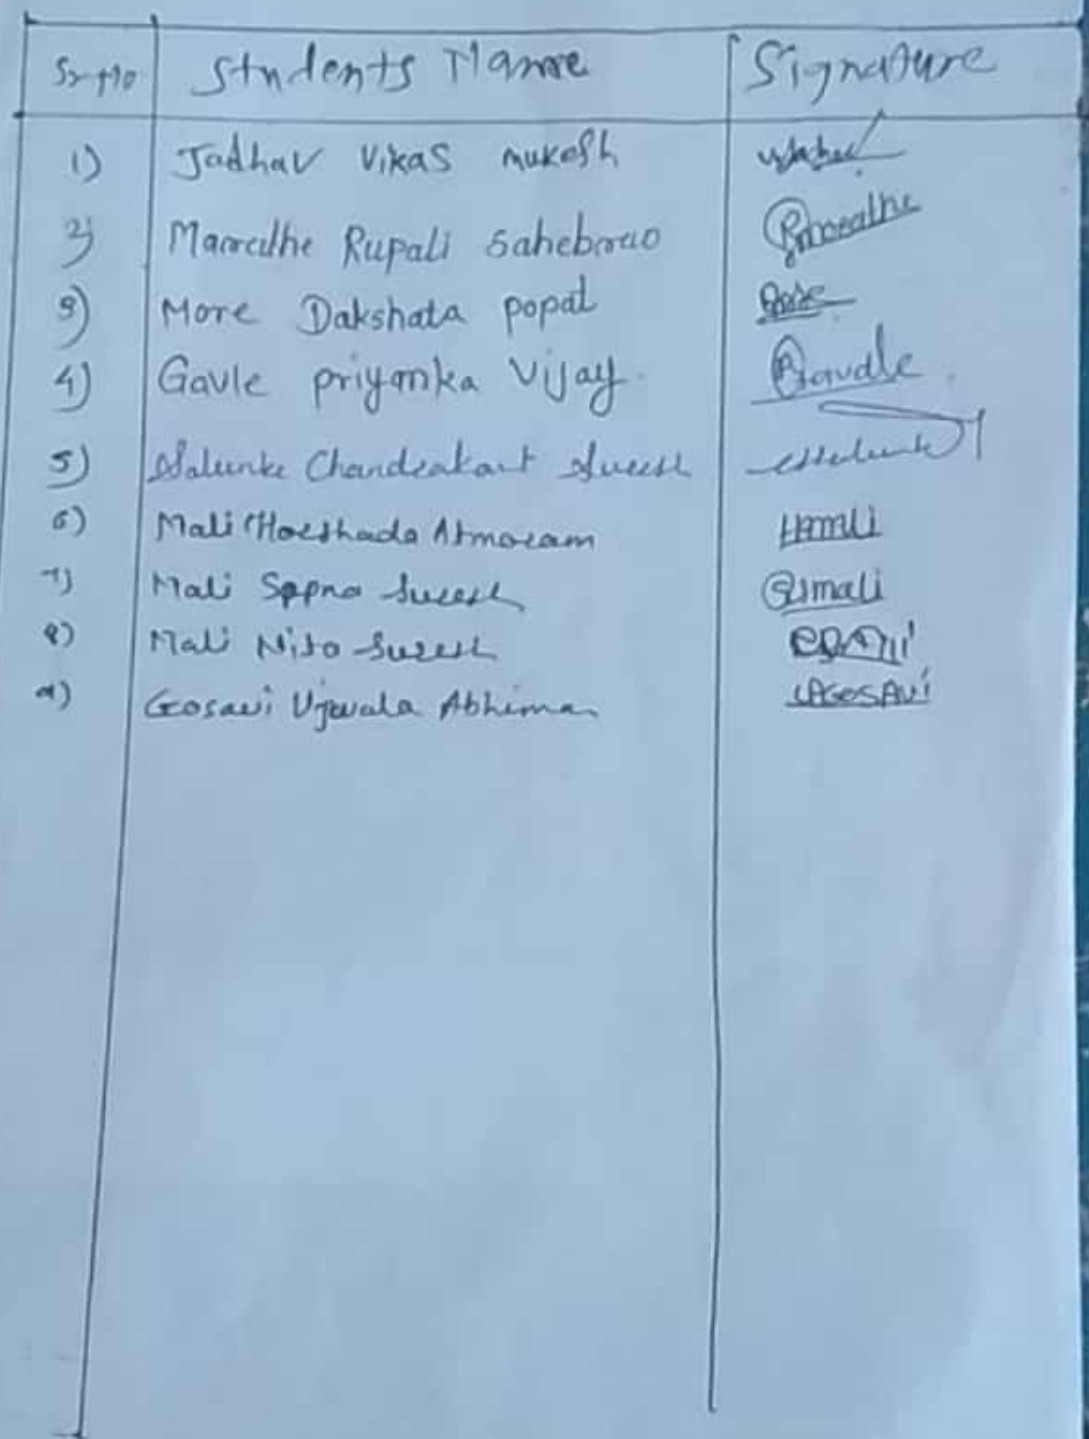 Sr No Students Name Signature
1) Jadhav Vikas mukesh
2) Marathe Rupali Sahebrao Rmarathe
3) More Dakshata popat
4) Gavle priyanka Vijay Pgavale
5) Salunke Chandrakant Suresh
6) Mali Harshada Atmaram Hmali
7) Mali Sapna Suresh Smali
8) Mali Suresh
9) Gosavi Ujwala Abhiman UAGOSAVI